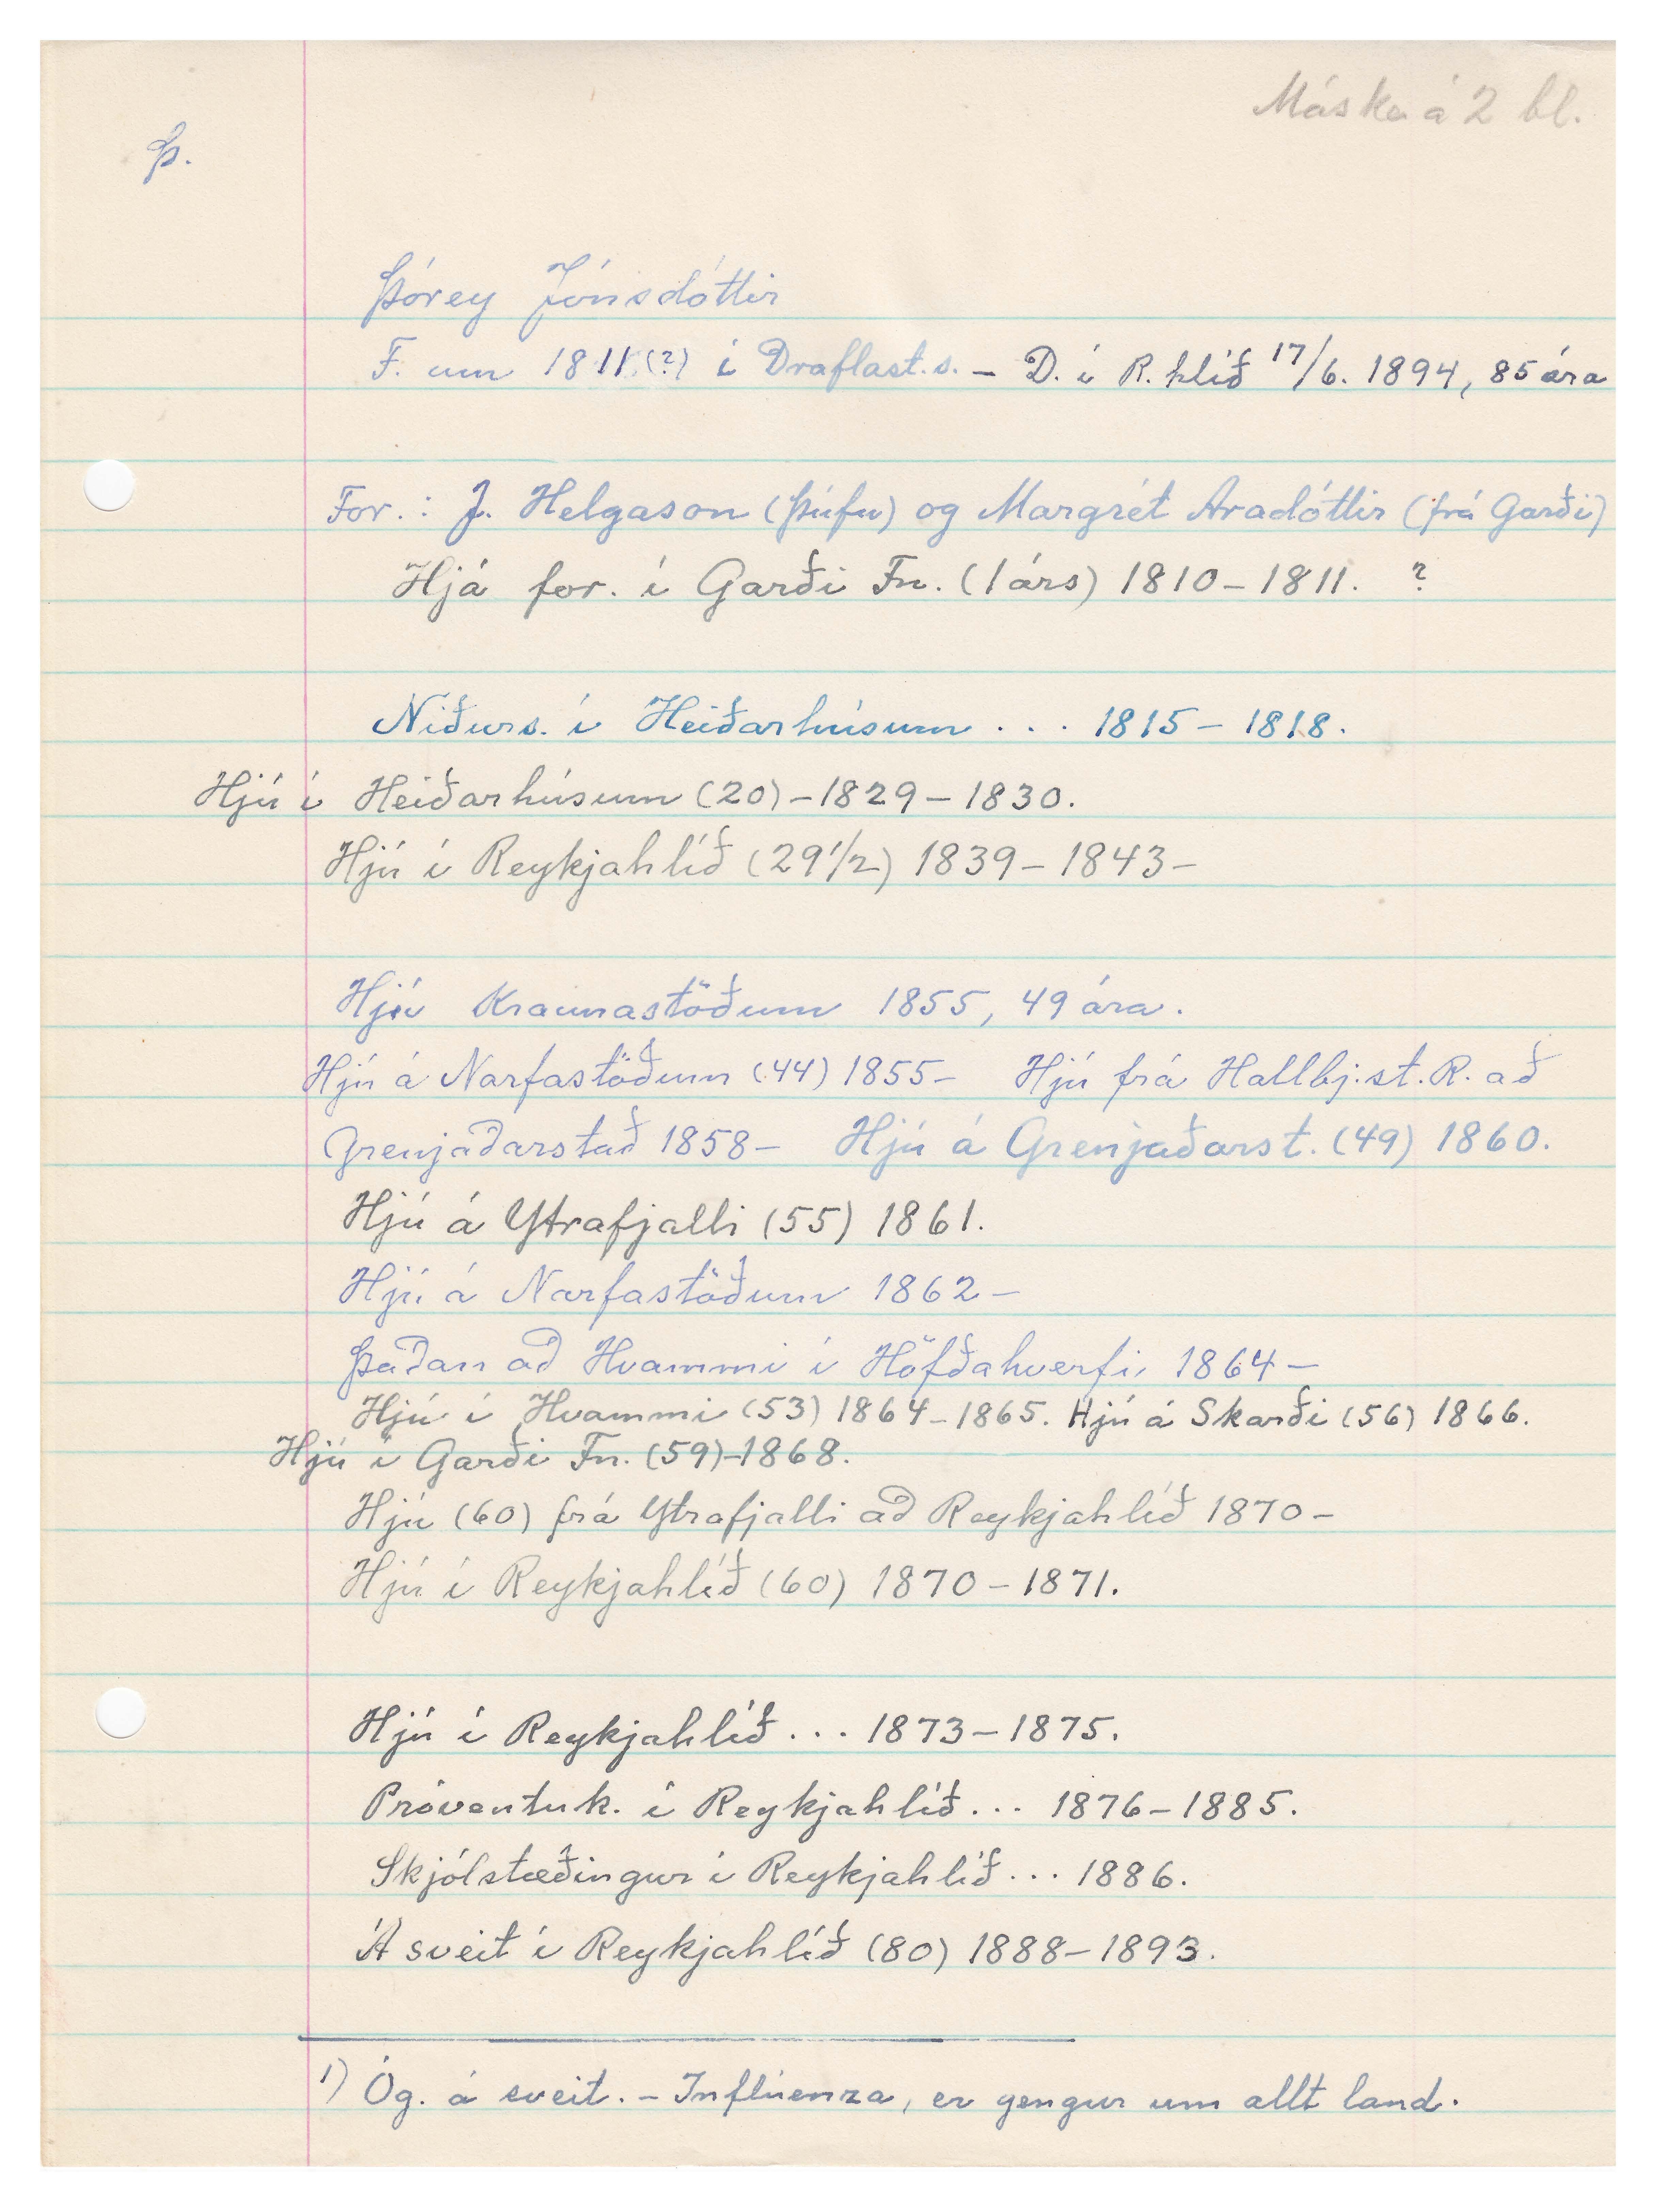 Máske á 2 bl.
Þ.
Þórey Jónsdóttir
F. um 1811 (?) í Draflast.s. – D. í R.hlíð 17/6. 1894, 85 ára
For.: J. Helgason (Þúfu) og Margrét Aradóttir (frá Garði)
Hjá for. í Garði Fn. (1 árs) 1810–1811. ?
Niðurs. í Heiðarhúsum . . . 1815–1818.
Hjú í Heiðarhúsum (20) – 1829–1830.
Hjú í Reykjahlíð (29 1/2) 1839–1843–
Hjú Kraunastöðum 1855, 49 ára.
Hjú á Narfastöðum (44) 1855– Hjú frá Hallbj.st. R. að
Grenjaðarstað 1858– Hjú á Grenjaðarst. (49) 1860.
Hjú á Ytrafjalli (55) 1861.
Hjú á Narfastöðum 1862–
Þaðan að Hvammi í Höfðahverfi, 1864–
Hjú í Hvammi (53) 1864–1865. Hjú á Skarði (56) 1866.
Hjú í Garði Fn. (59)–1868.
Hjú (60) frá Ytrafjalli að Reykjahlíð 1870–
Hjú í Reykjahlíð (60) 1870–1871.
Hjú í Reykjahlíð . . . 1873–1875.
Próventuk. í Reykjahlíð . . . 1876–1885.
Skjólstæðingur í Reykjahlíð . . . 1886.
Á sveit í Reykjahlíð (80) 1888–1893.
1) Óg. á sveit. – Inflúenza, er gengur um allt land.